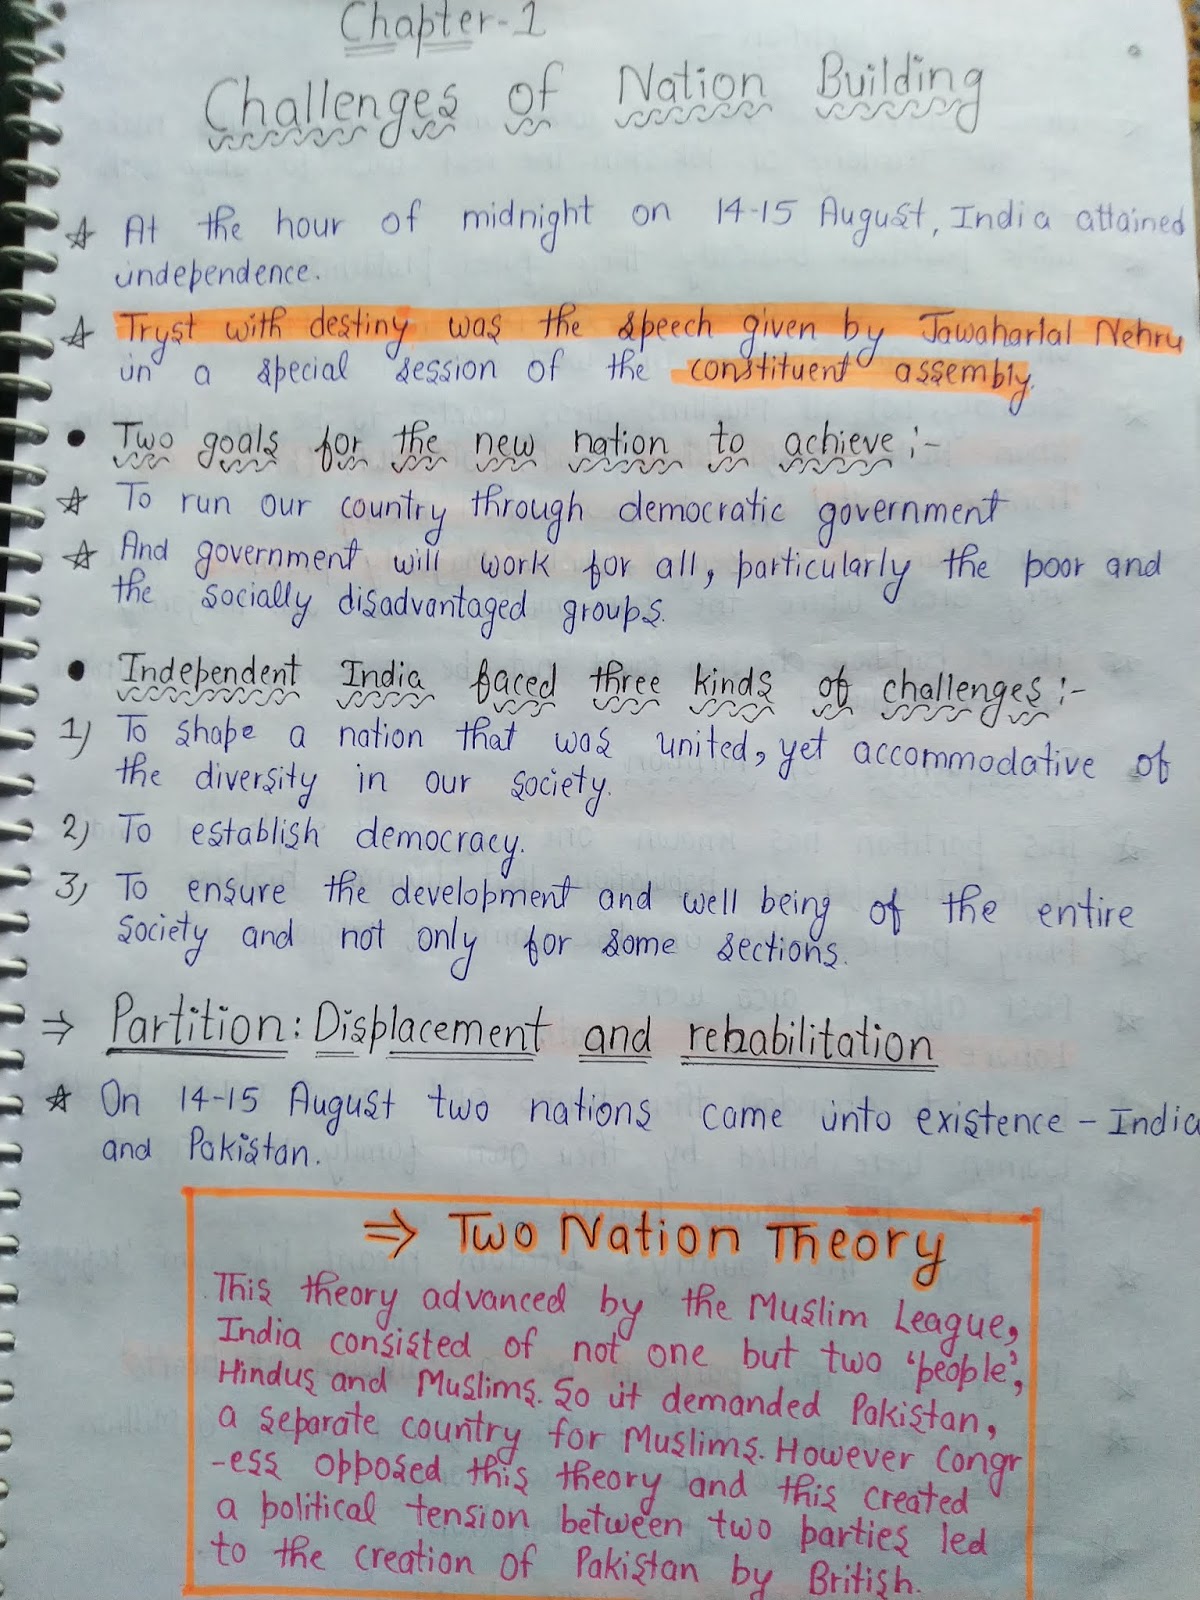 Chapter-1
Challenges of Nation Building
☆ At the hour of midnight on 14-15 August, India attained
independence.
☆ Tryst with destiny was the speech given by Jawaharlal Nehru
in a special session of the constituent assembly.
• Two goals for the new nation to achieve :-
☆ To run our country through democratic government
☆ And government will work for all, particularly the poor and
the socially disadvantaged groups.
• Independent India faced three kinds of challenges :-
1) To shape a nation that was united, yet accommodative of
the diversity in our society.
2) To establish democracy.
3) To ensure the development and well being of the entire
society and not only for some sections.
⇒ Partition: Displacement and rehabilitation
☆ On 14-15 August two nations came into existence - India
and Pakistan.
⇒ Two Nation Theory
This theory advanced by the Muslim League,
India consisted of not one but two 'people',
Hindus and Muslims. So it demanded Pakistan,
a separate country for Muslims. However Congr
-ess opposed this theory and this created
a political tension between two parties led
to the creation of Pakistan by British.